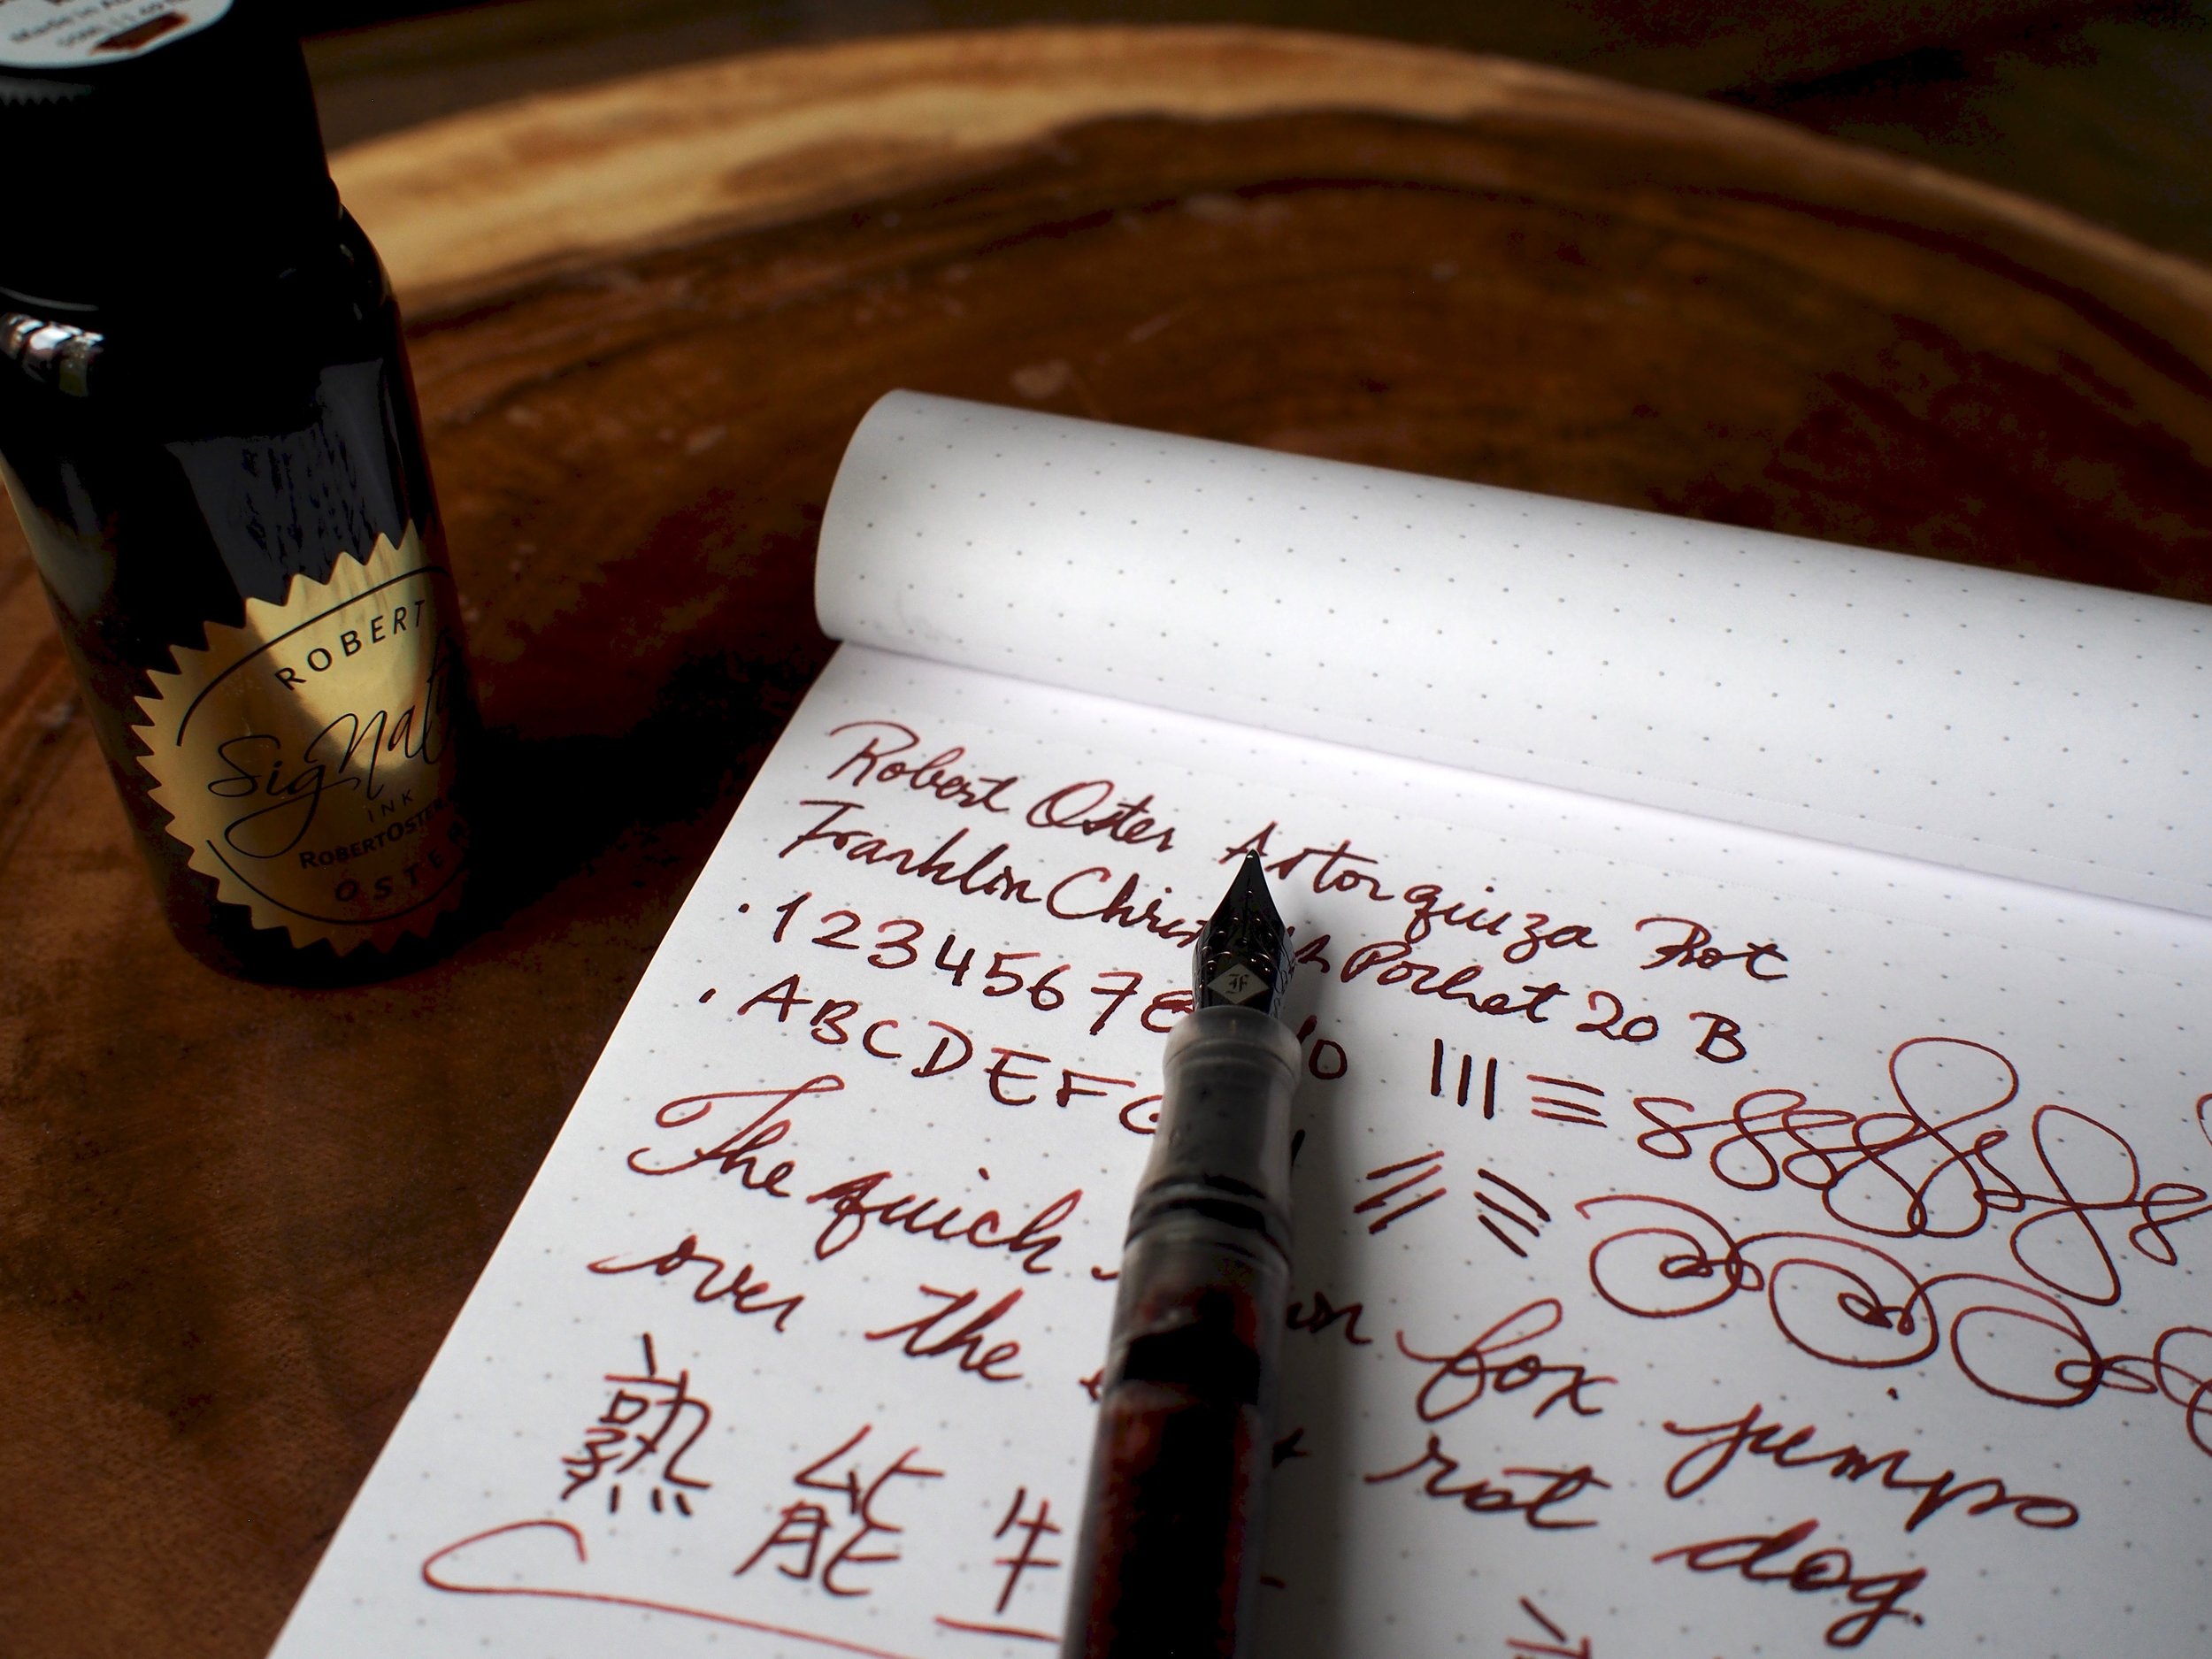 ROBERT
Signat
INK
ROBERTOSTER
OSTER
Robert Oster Astorquiza Rot
Franklin Christoph Pocket 20 B
1 2 3 4 5 6 7 8 10
A B C D E F G
The quick fox jumps
over the rot dog.
熟能生